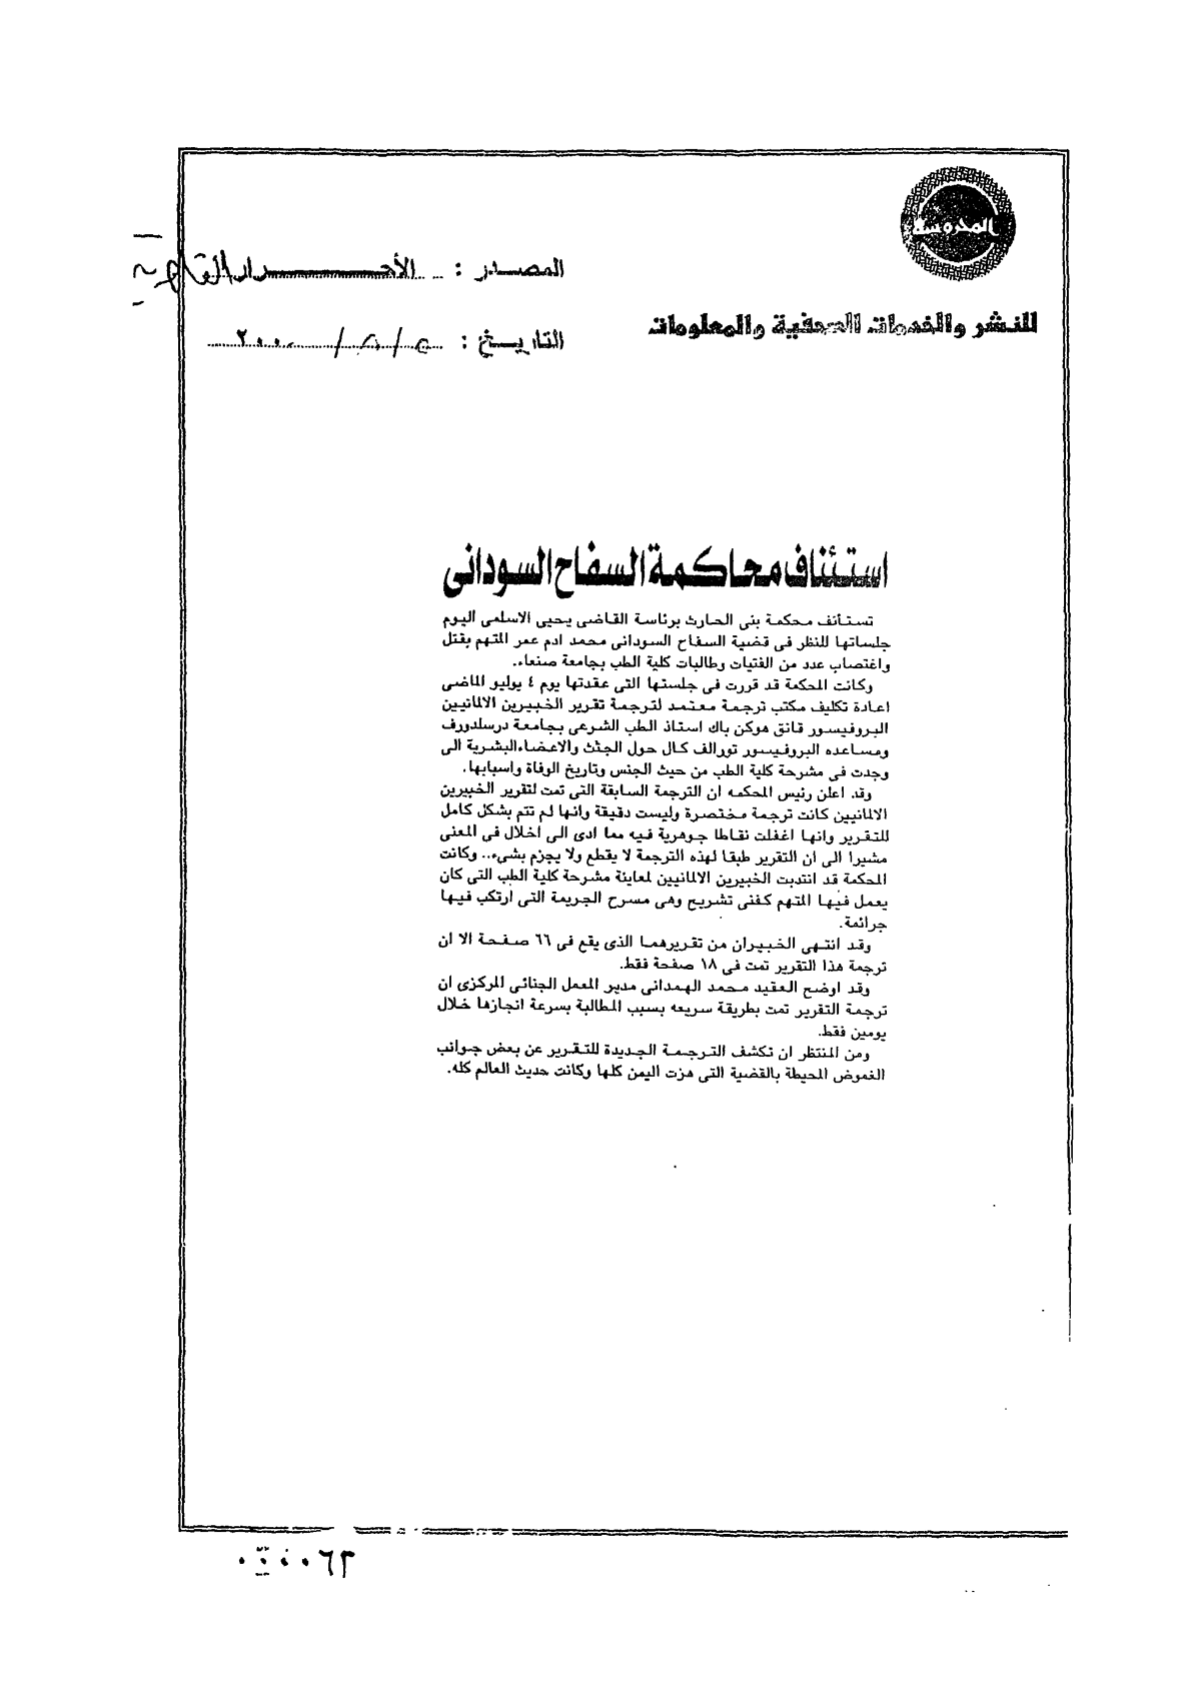 المحروسة
المصدر : الأحرار القاهرية
للنشر والخدمات الصحفية والمعلومات
التاريخ : ٥/٨/٢٠٠٠
استئناف محاكمة السفاح السودانى
تستأنف محكمة بنى الحارث برئاسة القاضى يحيى الاسلمى اليوم
جلساتها للنظر فى قضية السفاح السودانى محمد ادم عمر المتهم بقتل
واغتصاب عدد من الفتيات وطالبات كلية الطب بجامعة صنعاء.
وكانت المحكمة قد قررت فى جلستها التى عقدتها يوم ٤ يوليو الماضى
اعادة تكليف مكتب ترجمة معتمد لترجمة تقرير الخبيرين الالمانيين
البروفيسور قانق هوكن باك استاذ الطب الشرعى بجامعة درسلدورف
ومساعده البروفيسور تورالف كال حول الجثث والاعضاء البشرية الى
وجدت فى مشرحة كلية الطب من حيث الجنس وتاريخ الوفاة واسبابها.
وقد اعلن رئيس المحكمه ان الترجمة السابقة التى تمت لتقرير الخبيرين
الالمانيين كانت ترجمة مختصرة وليست دقيقة وانها لم تتم بشكل كامل
للتقرير وانها اغفلت نقاطا جوهرية فيه مما ادى الى اخلال فى المعنى
مشيرا الى ان التقرير طبقا لهذه الترجمة لا يقطع ولا يجزم بشىء.. وكانت
المحكمة قد انتدبت الخبيرين الالمانيين لمعاينة مشرحة كلية الطب التى كان
يعمل فيها المتهم كفنى تشريح وهى مسرح الجريمة التى ارتكب فيها
جرائمة.
وقد انتهى الخبيران من تقريرهما الذى يقع فى ٦٦ صفحة الا ان
ترجمة هذا التقرير تمت فى ١٨ صفحة فقط.
وقد اوضح العقيد محمد الهمدانى مدير المعمل الجنائى المركزى ان
ترجمة التقرير تمت بطريقة سريعه بسبب المطالبة بسرعة انجازها خلال
يومين فقط.
ومن المنتظر ان تكشف الترجمة الجديدة للتقرير عن بعض جوانب
الغموض المحيطة بالقضية التى هزت اليمن كلها وكانت حديث العالم كله.